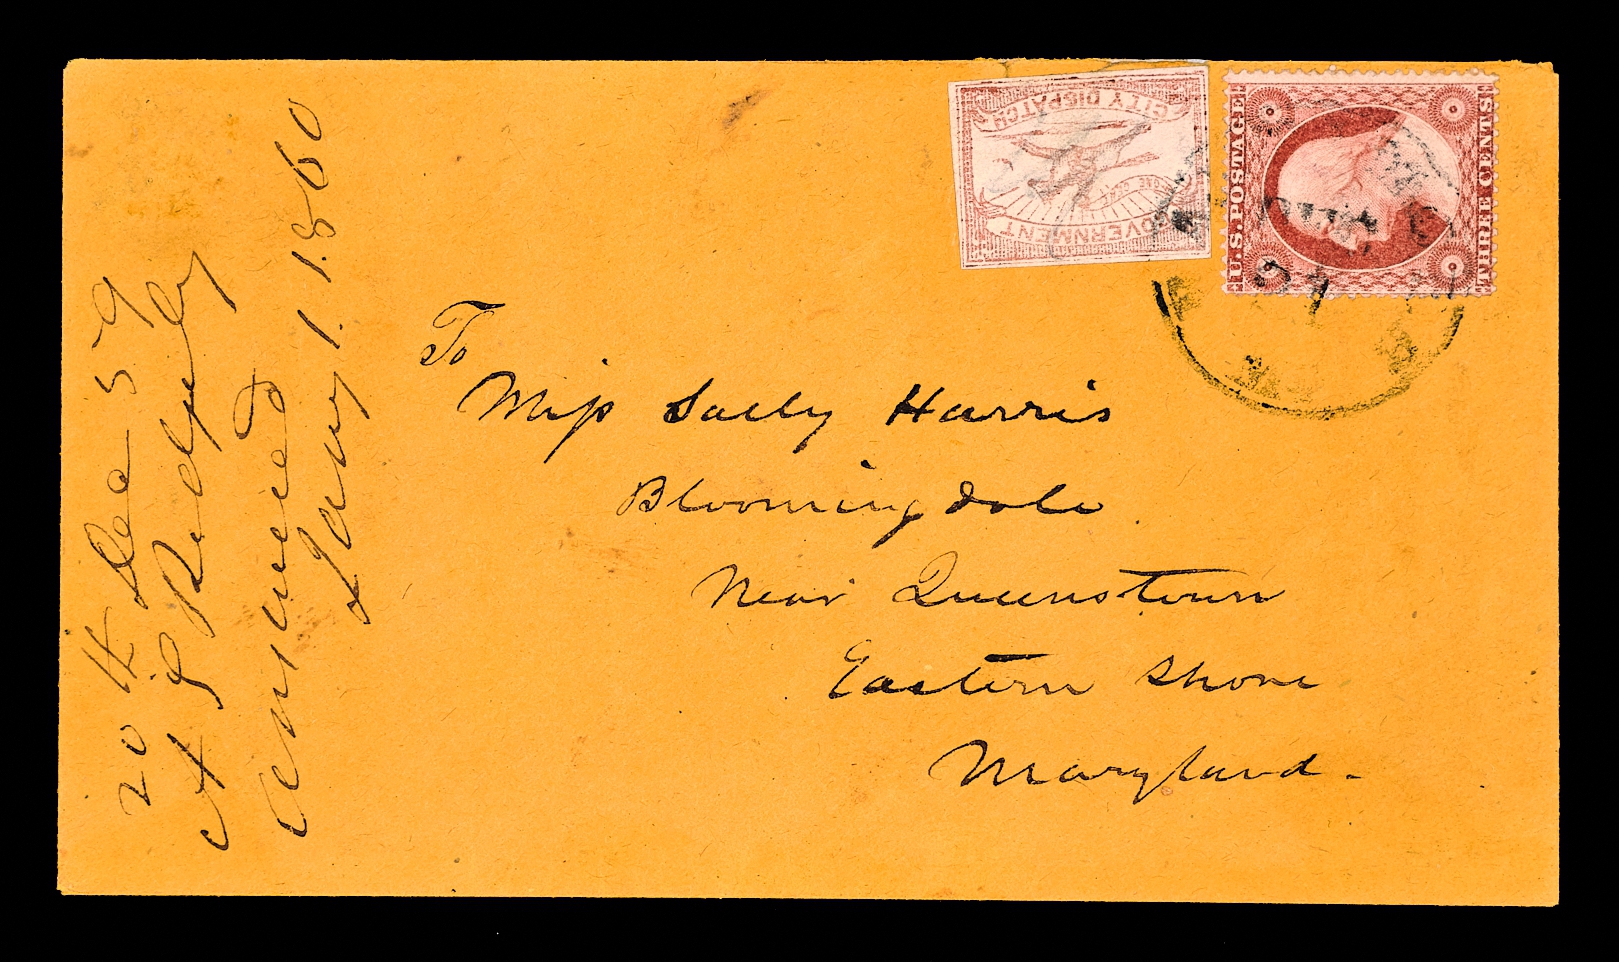 20th Dec 59
A S Ridgely
answered
Jany 1. 1860
To
Miss Sally Harris
Bloomingdale
Near Queenstown
Eastern Shore
Maryland -
GOVERNMENT
ONE CENT
CITY DISPATCH
U.S. POSTAGE
THREE CENTS